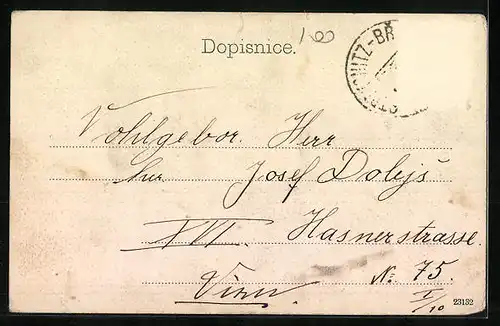 100
Dopisnice.
NITZ-BŘ
Vohlgebor. Herr
Josef Dolejš
XVI. Hasnerstrasse.
Wien. No 75.
I/10
23152